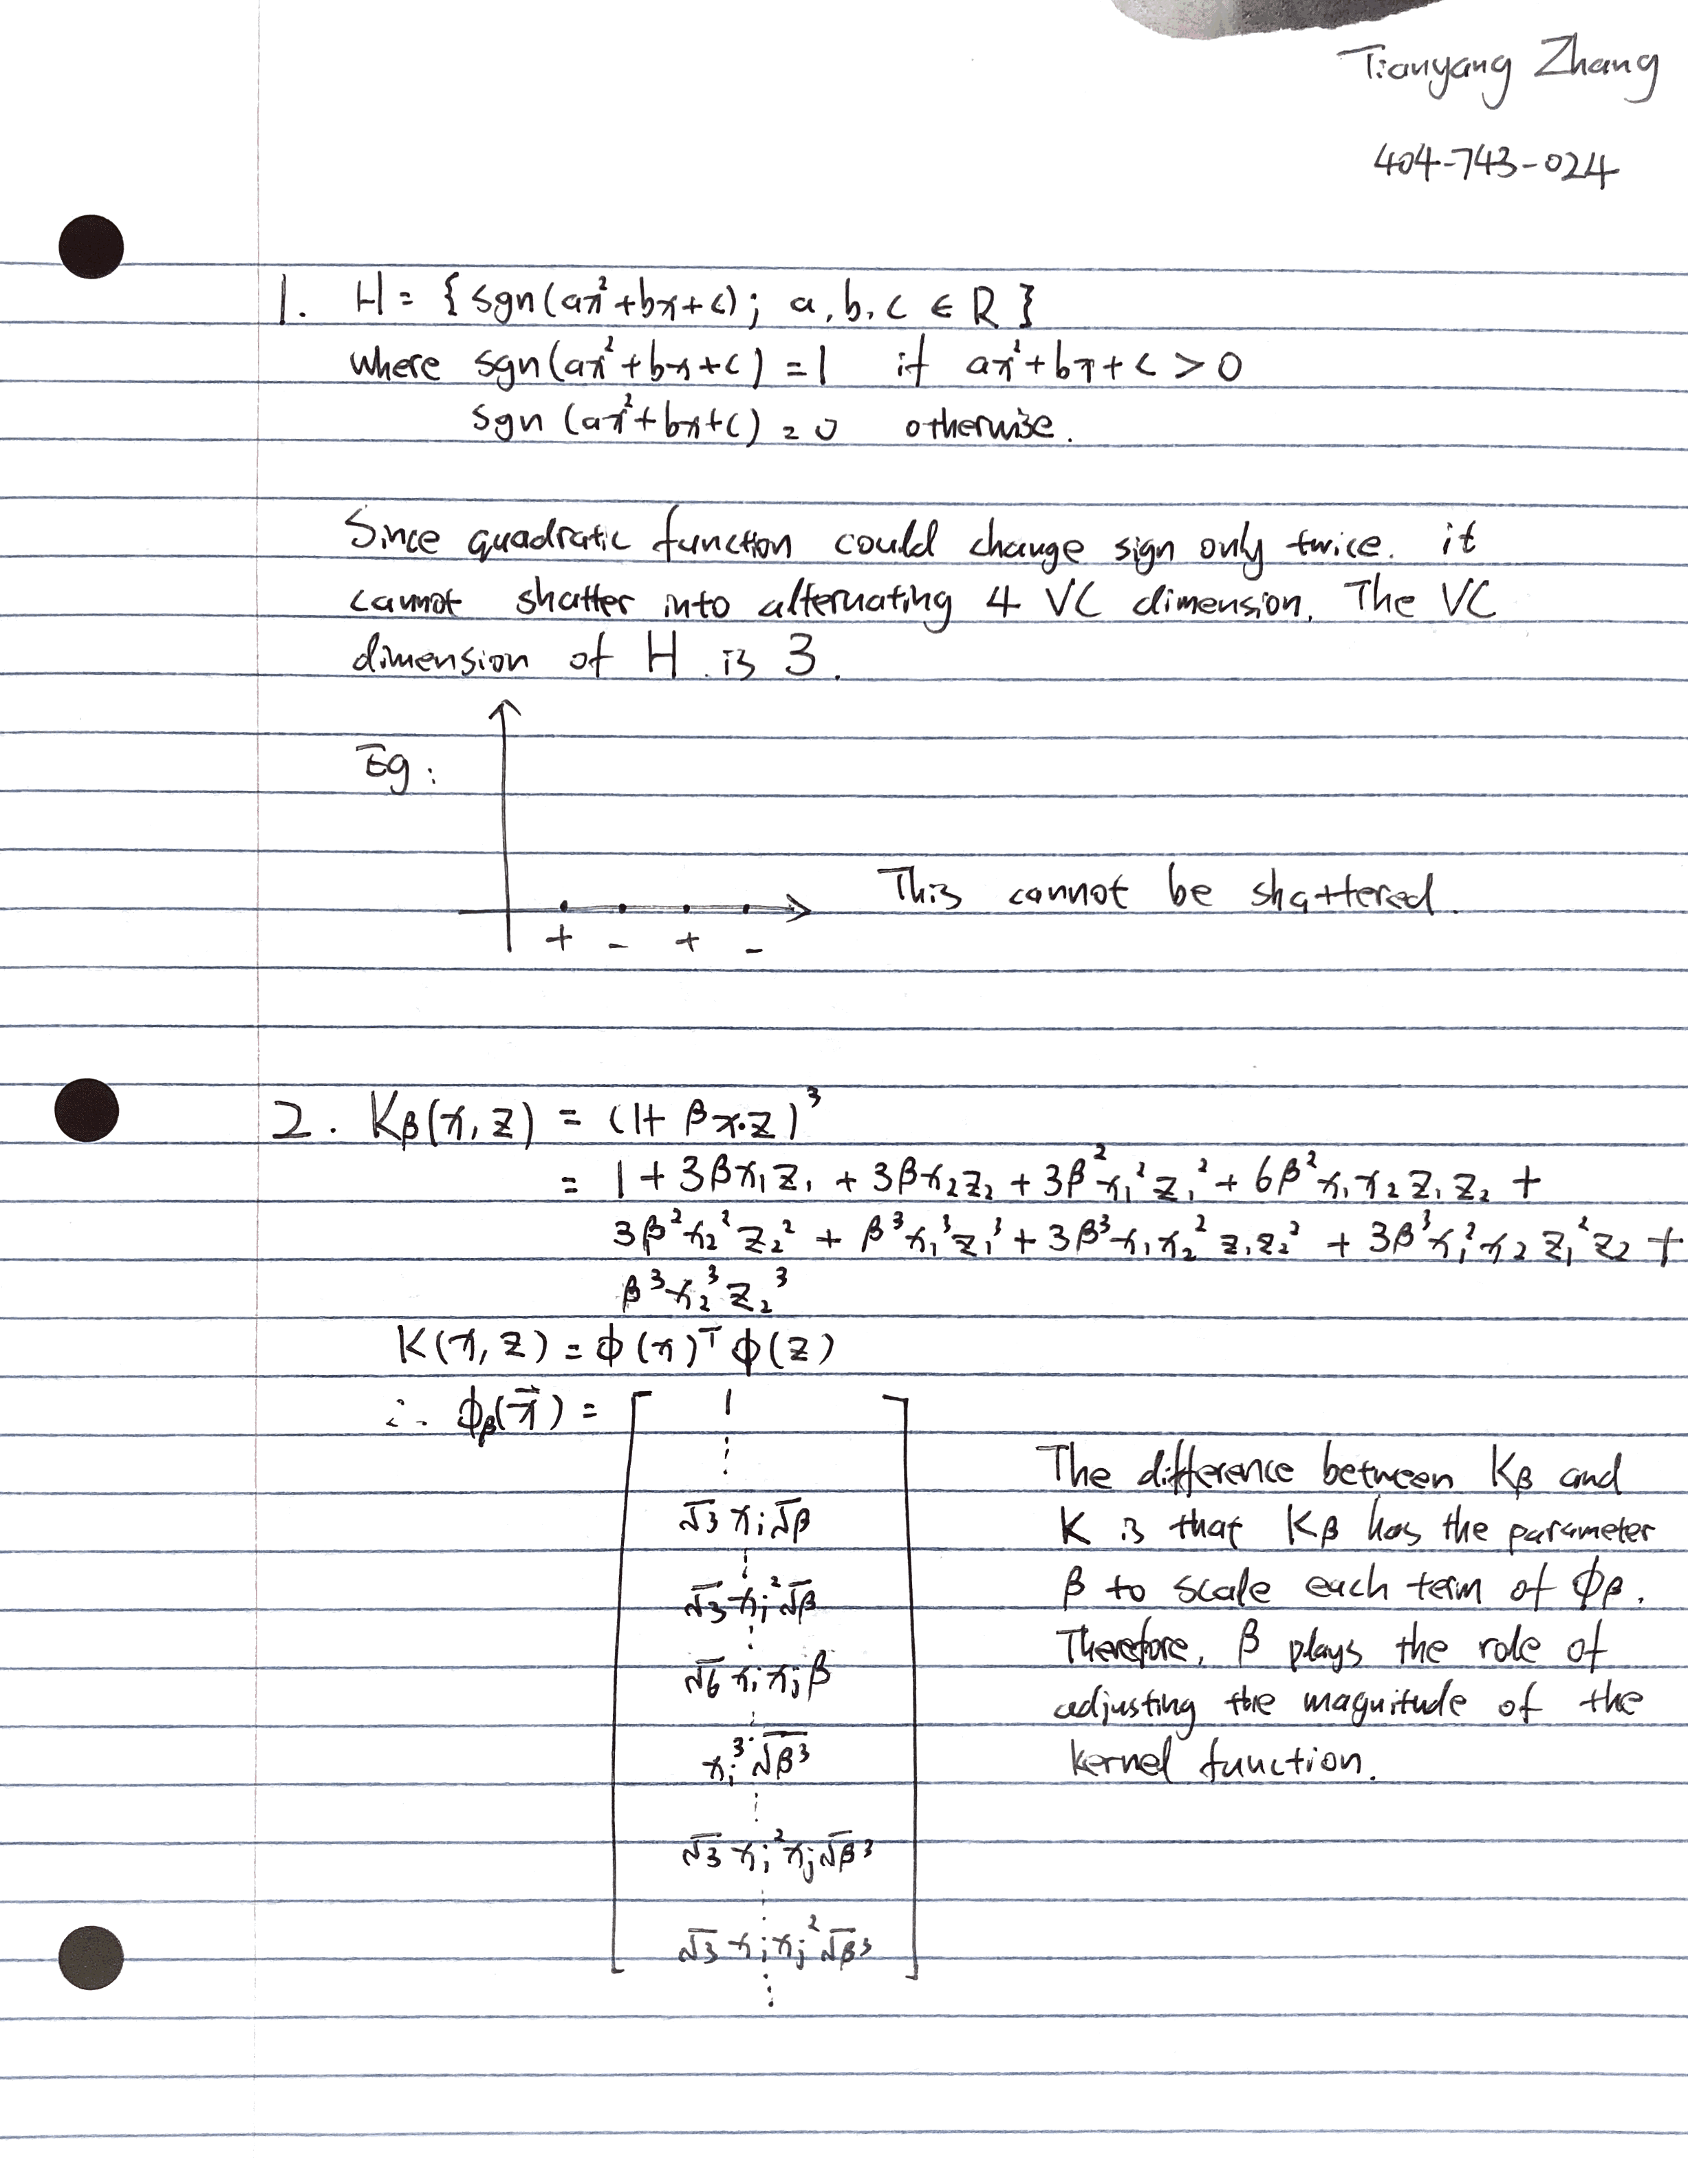 Tianyang Zhang
404-743-024
1. H = { sgn(ax²+bx+c); a, b, c ∈ R }
where sgn(ax²+bx+c) = 1 if ax²+bx+c > 0
sgn (ax²+bx+c) = 0 otherwise.
Since quadratic function could change sign only twice. it
cannot shatter into alternating 4 VC dimension. The VC
dimension of H is 3.
Eg:
This cannot be shattered.
+ - + -
2. Kβ(x, z) = (1+ βx·z)³
= 1 + 3βx₁z₁ + 3βx₂z₂ + 3β²x₁²z₁² + 6β²x₁x₂z₁z₂ +
3β²x₂²z₂² + β³x₁³z₁³ + 3β³x₁x₂²z₁z₂² + 3β³x₁²x₂z₁²z₂ +
β³x₂³z₂³
K(x, z) = φ(x)ᵀφ(z)
∴ φβ(x⃗) =
1
⋮
√3 xᵢ√β
⋮
√3 xᵢ²√β
⋮
√6 xᵢxⱼβ
⋮
xᵢ³√β³
⋮
√3 xᵢ²xⱼ√β³
⋮
√3 xᵢxⱼ²√β³
⋮
The difference between Kβ and
K is that Kβ has the parameter
β to scale each term of φβ.
Therefore, β plays the role of
adjusting the magnitude of the
kernel function.